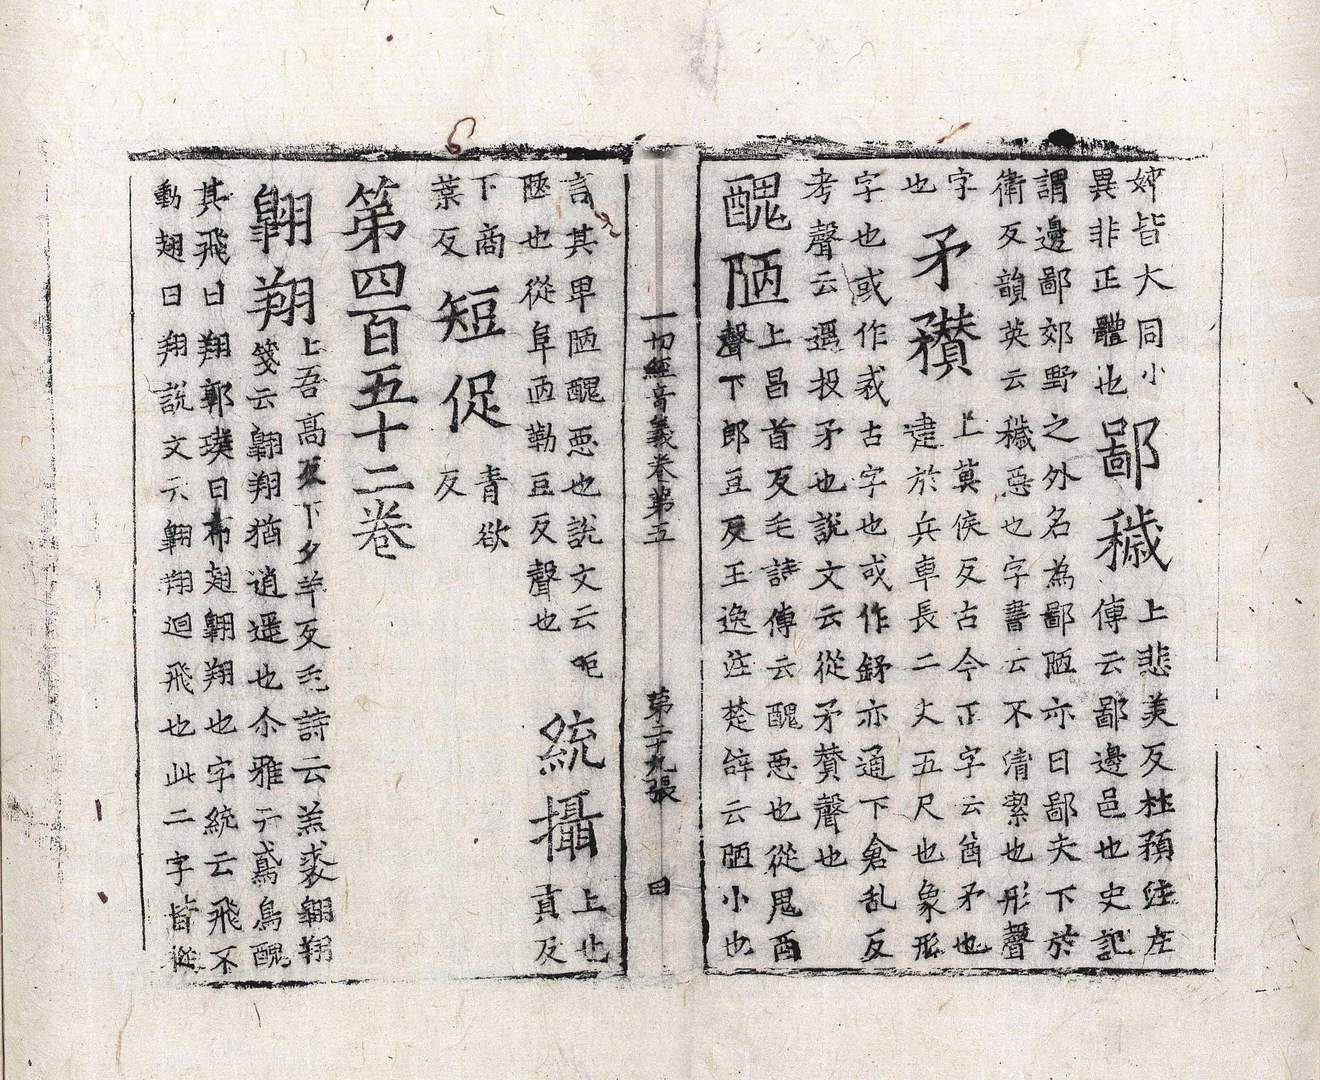 妳皆大同小
異非正體也
鄙穢
上悲美反杜預注左
傳云鄙邊邑也史記
謂邊鄙郊野之外名為鄙陋亦曰鄙夫下於
衛反韻英云穢惡也字書云不清潔也形聲
字
也
矛穳
上莫侯反古今正字云酋矛也
建於兵車長二丈五尺也象形
字也或作𢦧古字也或作䥐亦通下倉乱反
考聲云遥投矛也說文云從矛贊聲也
醜陋
上昌首反毛詩傳云醜惡也從鬼酉
聲下郎豆反王逸注楚辝云陋小也
一切經音義卷第五
第二十九張
田
言其卑陋醜惡也說文云
陋也從阜㔷勒豆反聲也
統攝
上也
下商
葉反
短促
青欲
反
第四百五十二卷
翺翔
上吾高反下夕羊反毛詩云羔裘翺翔
箋云翺翔猶逍遥也尒雅云鳶烏醜
其飛曰翔郭璞曰布翅翺翔也字統云飛不
動翅曰翔說文云翺翔迴飛也此二字皆從